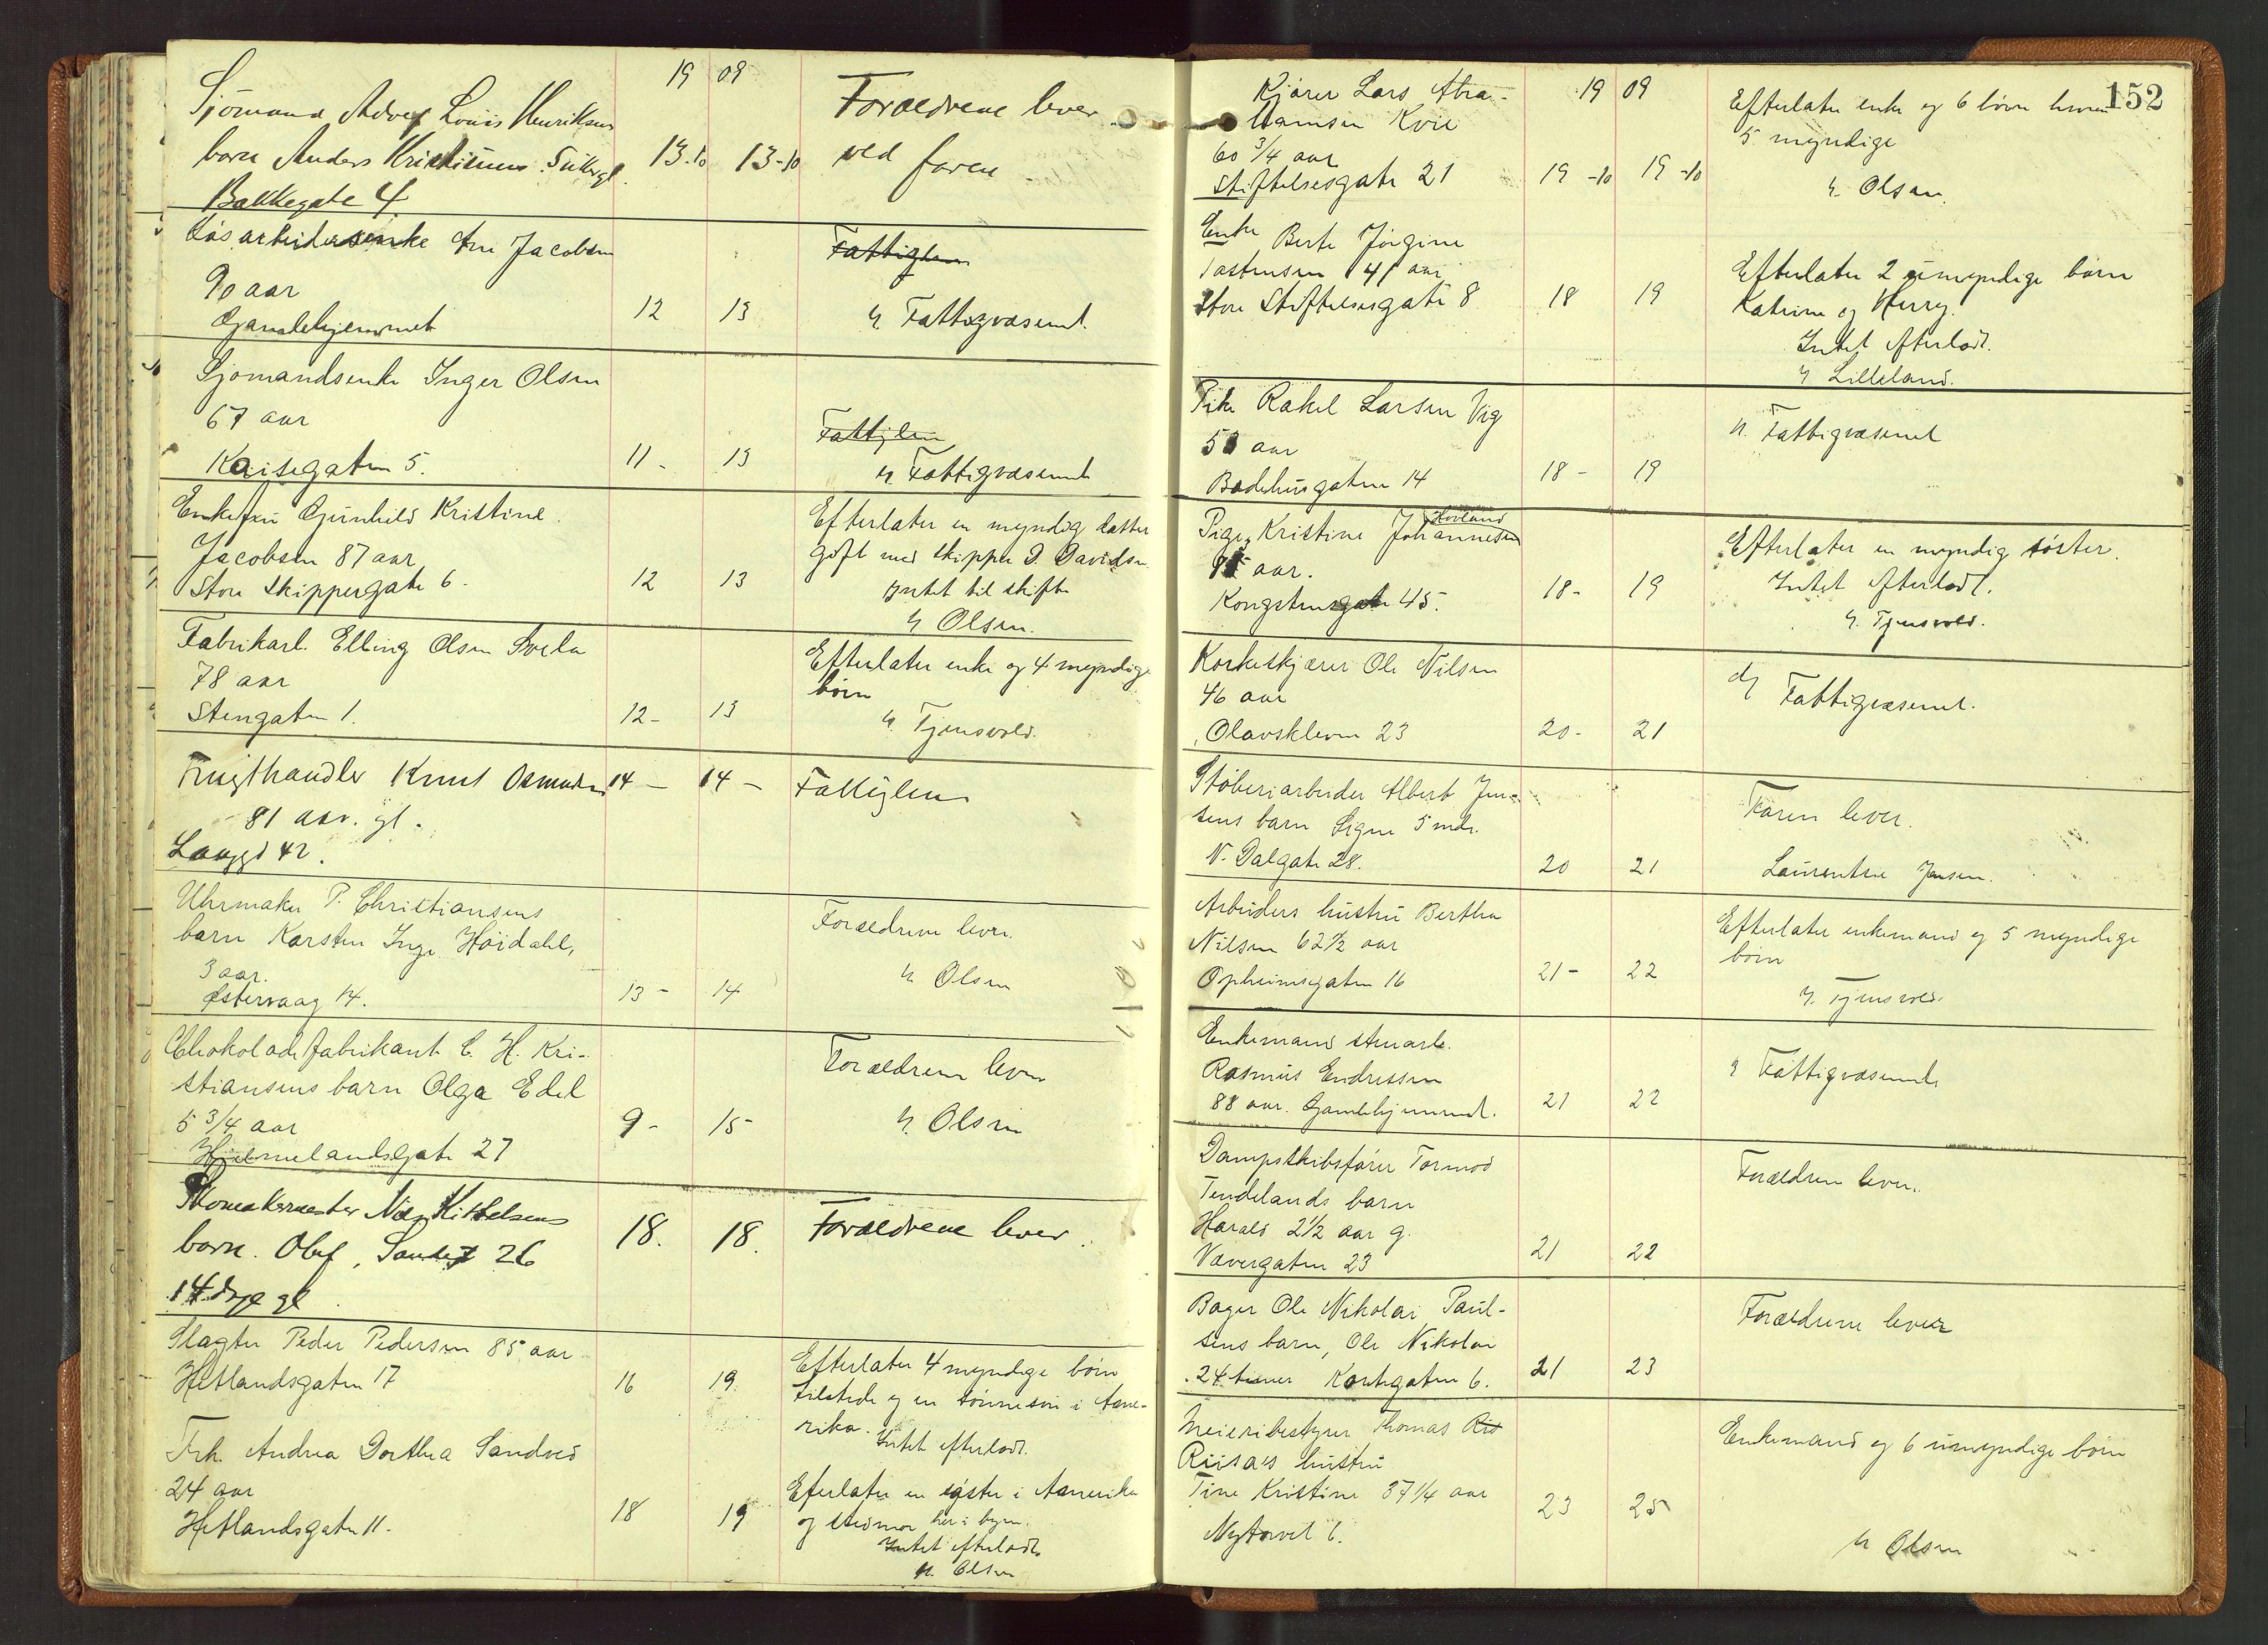 19 09
Sjömand Adolf Louis Henriksen
barn Anders Kristinus
Bakkegate 4
13.10 13-10
Forældrene lever
ved faren
Løsarbeidersenke Ane Jacobsen
90 aar
Gamlehjemmet
12 13
Fattiglem
v. Fattigvæsenet
Sjømandsenke Inger Olsen
67 aar
Kaisegaten 5.
11- 13
Fattiglem
v Fattigvæsenet
Enkefru Gunhild Kristine
Jacobsen 87 aar
Store Skippergate 6.
12 13
Efterlater en myndig datter
gift med skipper D. Davidsen
Intet til skifte
v Olsen.
Fabrikarb. Elling Olsen Svela
78 aar
Stengaten 1.
12- 13
Efterlater enke og 4 myndige
børn
v. Tjensvold.
Frugthandler Knut Osmundsen
81 aar. gl.
Langgt 42.
14- 14-
Fattiglem
Uhrmaker P. Christiansens
barn Karsten Inge Höidahl,
3 aar.
Østervaag 14.
13- 14
Forældrene lever.
v. Olsen
Chokoladefabrikant C. H. Kri-
stiansens barn Olga Edel
5 3/4 aar
Hjelmelandsgate 27
9- 15
Forældrene lever
v. Olsen
Skomakermester Kittelsens
barn. Olaf, 26
14 dage gl
18. 18.
Forældrene lever.
Slagter Peder Pedersen 85 aar
Hetlandsgaten 17
16 19.
Efterlater 4 myndige børn
tilstede og en sønnesøn i Ame-
rika. Intet efterladt.
Frk. Andrea Dorthea Sandved
24 aar
Hetlandsgaten 11.
18 19
Efterlater en søster i Amerika
og stedmor her i byen.
Intet efterladt.
v. Olsen
152
19 09
Kjører Lars Abra-
hamsen Kvie
60 3/4 aar
Stiftelsesgate 21
19-10 19-10
Efterlater enke og 6 børn hvoraf
5 myndige
v. Olsen.
Enke Berte Jörgine
Tastensen 41 aar
Store Stiftelsesgate 8
18 19
Efterlater 2 umyndige børn
Katrine og Henry.
Intet efterladt.
v Lilleland.
Pike Rakel Larsen Vig
aar
Badehusgaten 14
18- 19
v. Fattigvæsenet
Hovland
Pige, Kristine Johannesen
aar.
Kongstensgate 45.
18- 19
Efterlater en myndig søster.
Intet efterladt.
v. Tjensvold.
Korkeskjærer Ole Nilsen
46 aar
Olavskleven 23
20- 21
v Fattigvæsenet.
Støberiarbeider Albert Jen-
sens barn Signe 5 mdr.
N. Dalgate 28.
20 21
Faren lever.
Laurentse Jensen.
Arbeiders hustru Bertha
Nilsen 62 1/2 aar
Opheimsgaten 16
21- 22
Efterlater enkemand og 5 myndige
børn
v. Tjensvold.
Enkemand stuarb.
Rasmus Endresen
88 aar. Gamlehjemmet.
21 22
v Fattigvæsenet
Dampskibsfører Tormod
Tendelands barn
Harald 2 1/2 aar g.
Vævergaten 23
21 22
Forældrene lever.
Bager Ole Nikolai Paul-
sens barn, Ole Nikolai
24 timer Kortegaten 6.
21 23
Forældrene lever
Meieribestyrer Thomas
Riisa's hustru
Tine Kristine 37 1/4 aar
Nytorvet 6.
23 25
Enkemand og 6 umyndige børn
v Olsen